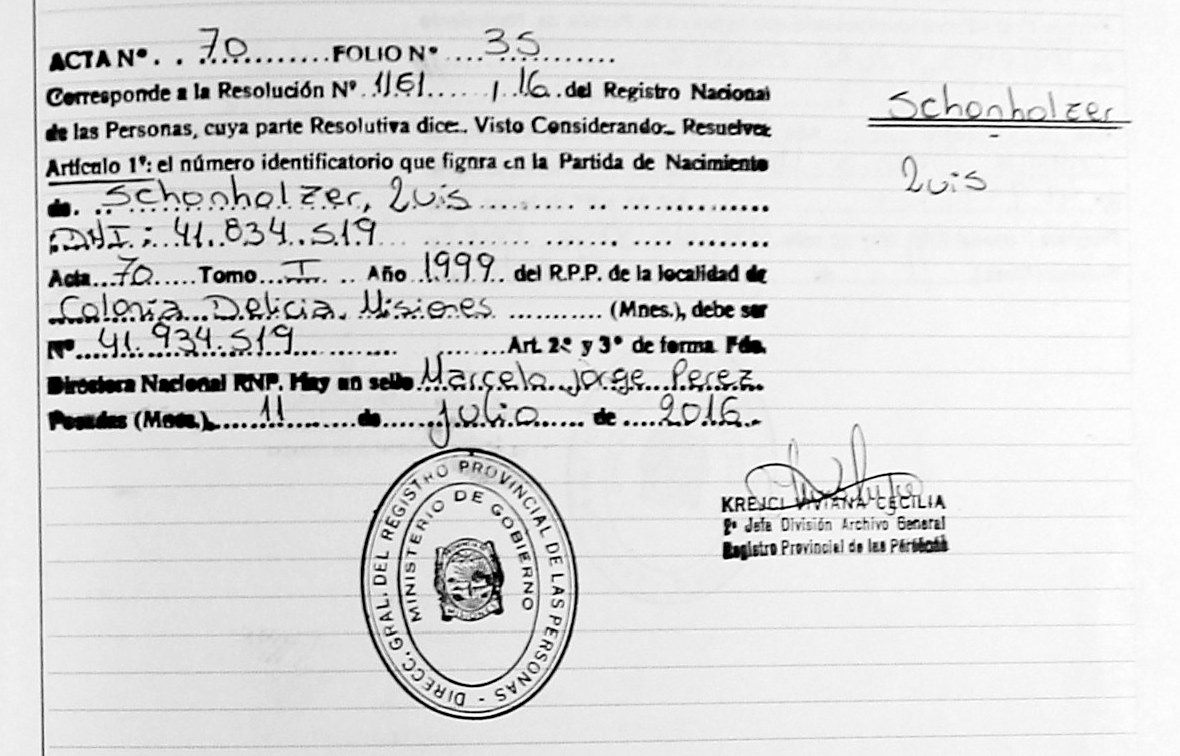 ACTA Nº.. 70 ......... FOLIO Nº .... 35 ..........
Corresponde a la Resolución Nº 1161 ...... / 16 . del Registro Nacional
de las Personas, cuya parte Resolutiva dice:. Visto Considerando:. Resuelve:
Artículo 1º: el número identificatorio que figura en la Partida de Nacimiento
de. .. Schonholzer, Luis ..............
: DNI : 41.834.519 ..............
Acta .. 70 ..... Tomo ... I ... Año 1999 del R.P.P. de la localidad de
Colonia Delicia, Misiones ........... (Mnes.), debe ser
Nº .... 41.934.519 .............. Art. 2º y 3º de forma Fdo.
Directora Nacional RNP. Hay un sello Marcela Jorge Perez.
Posadas (Mnes.), ...... 11 ...... de ...... julio ...... de ..... 2016 .
Schonholzer
Luis
DIRECC. GRAL. DEL REGISTRO PROVINCIAL DE LAS PERSONAS -
MINISTERIO DE GOBIERNO
MISIONES
KREJCI VIVIANA CECILIA
2º Jefa División Archivo General
Registro Provincial de las Personas